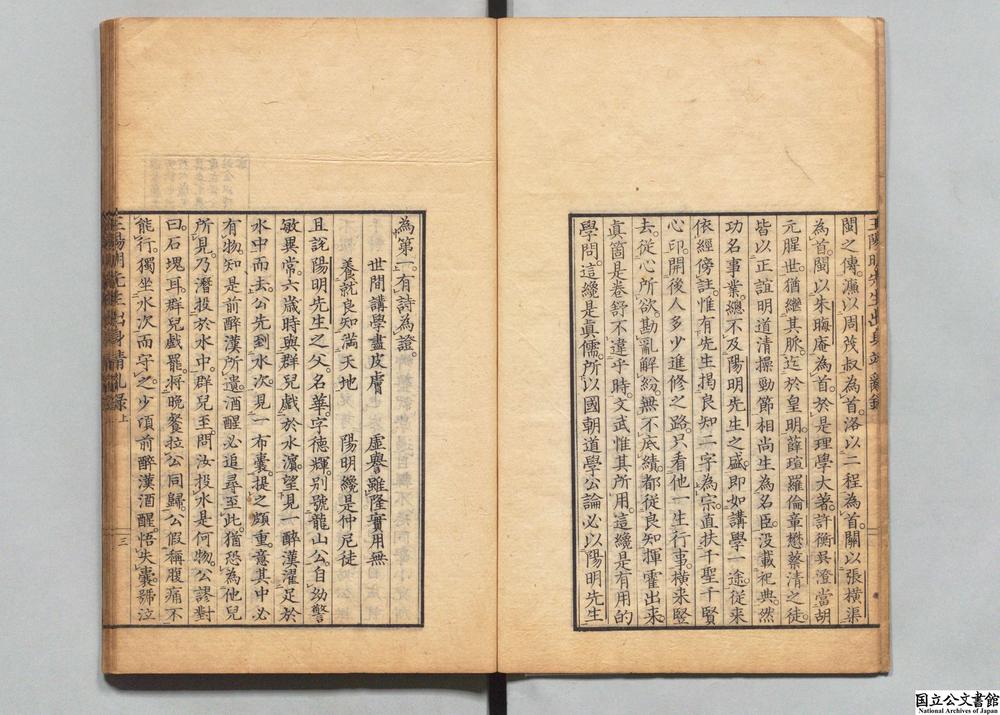 王陽明先生出身靖亂錄
閩之傳濂以周茂叔為首洛以二程為首關以張橫渠
為首閩以朱晦庵為首於是理學大著許衡吳澄當胡
元腥世猶繼其脈迄於皇明薛瑄羅倫章懋蔡清之徒
皆以正誼明道清操勁節相尚生為名臣沒載祀典然
功名事業總不及陽明先生之盛即如講學一途從來
依經傍註惟有先生揭良知二字為宗直扶千聖千賢
心印開後人多少進修之路只看他一生行事橫來豎
去從心所欲勘亂解紛無不底績都從良知揮霍出來
真箇是卷舒不違乎時文武惟其所用這纔是有用的
學問這纔是真儒所以國朝道學公論必以陽明先生
為第一有詩為證
世間講學盡皮膚 虛譽雖隆實用無
養就良知滿天地 陽明纔是仲尼徒
且說陽明先生之父名華字德輝別號龍山公自幼警
敏異常六歲時與群兒戲於水濱望見一醉漢濯足於
水中而去公先到水次見一布囊提之頗重意其中必
有物知是前醉漢所遺酒醒必追尋至此猶恐為他兒
所見乃潛投於水中群兒至問汝投水是何物公謬對
曰石塊耳群兒戲罷將晚餐拉公同歸公假稱腹痛不
能行獨坐水次而守之少頃前醉漢酒醒悟失囊號泣
王陽明先生出身靖亂錄 上 三
国立公文書館
National Archives of Japan